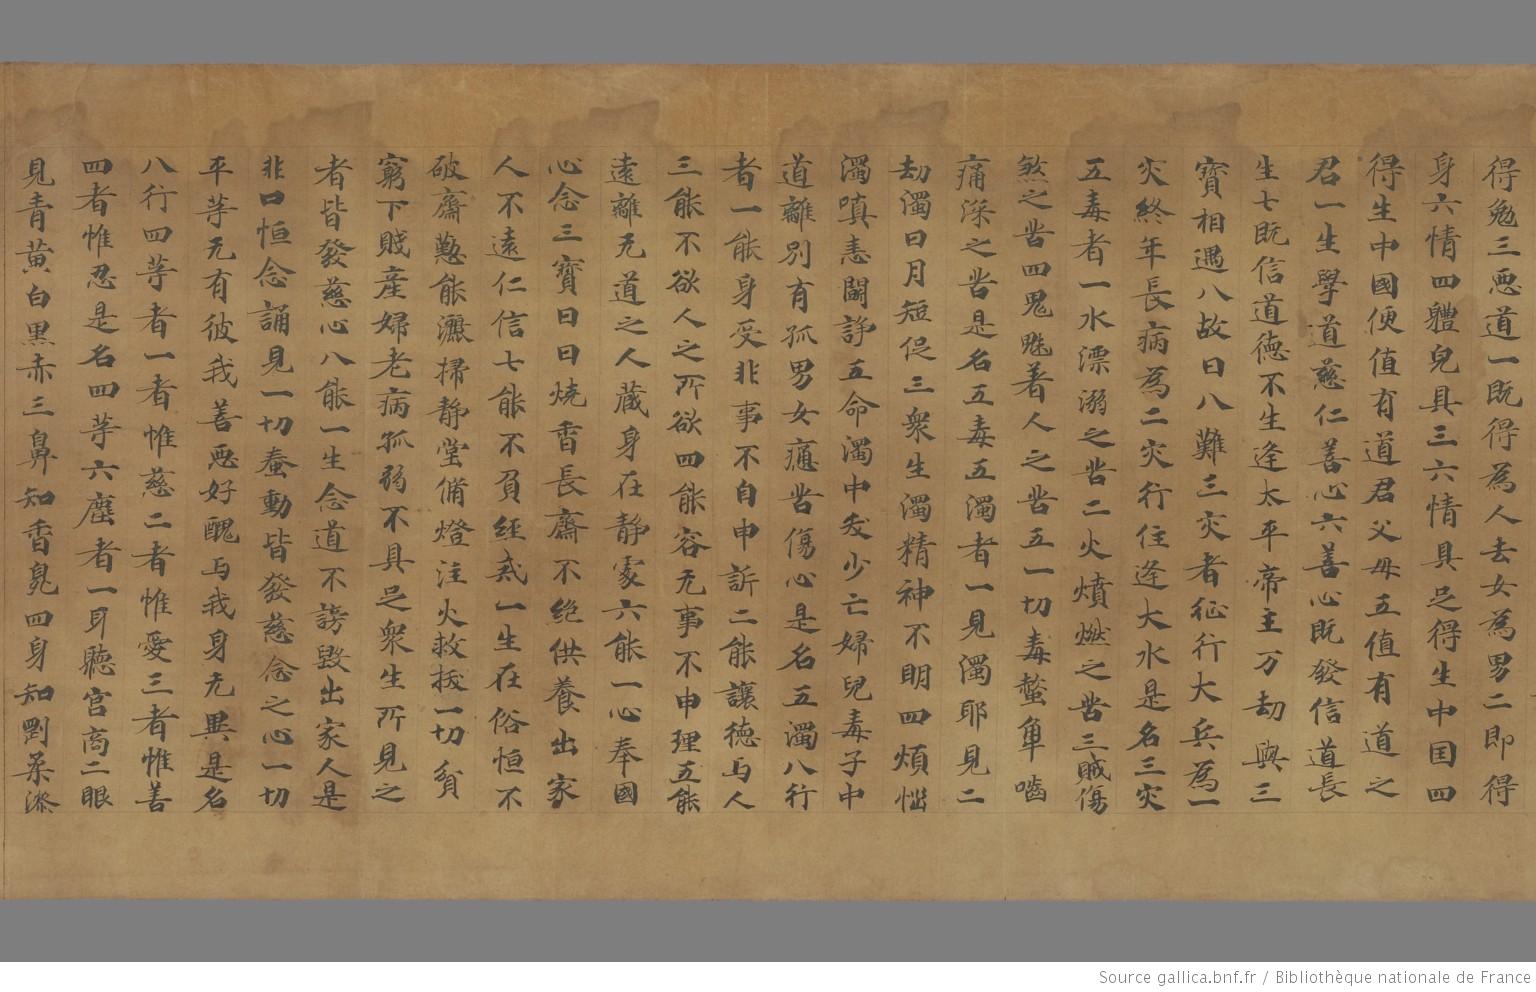 得勉三惡道一既得為人去女為男二即得
身六情四軆皃具三六情具足得生中国四
得生中國便值有道君父母五值有道之
君一生學道慈仁善心六善心既發信道長
生七既信道德不生逢太平帝主万劫與三
寳相遇八故曰八難三灾者征行大兵為一
灾終年長病為二灾行住逢大水是名三灾
五毒者一水漂溺之苦二火燌燃之苦三賊傷
煞之苦四鬼魅著人之苦五一切毒螫 嚙
痛深之苦是名五毒五濁者一見濁耶見二
劫濁日月短促三衆生濁精神不明四煩惱
濁嗔恚鬬諍五命濁中夭少亡婦兒毒子中
道離別有孤男女痛苦傷心是名五濁八行
者一能身受非事不自申訴二能讓德与人
三能不欲人之所欲四能容无事不申理五能
遠離无道之人蔵身在静家六能一心奉國
心念三寳日日燒香長齋不絶供養出家
人不遠仁信七能不負經戒一生在俗恒不
破齋懃能灑掃静堂俻燈注火救拔一切貧
窮下賤産婦老病孤弱不具足衆生所見之
者皆發慈心八能一生念道不謗毀出家人是
非口恒念誦見一切蠢動皆發慈念之心一切
平等无有彼我善惡好醜与我身无異是名
八行四等者一者惟慈二者惟愛三者惟善
四者惟忍是名四等六塵者一耳聽宫商二眼
見青黄白黒赤三鼻知香臭四身知劉柔漆
Source gallica.bnf.fr / Bibliothèque nationale de France